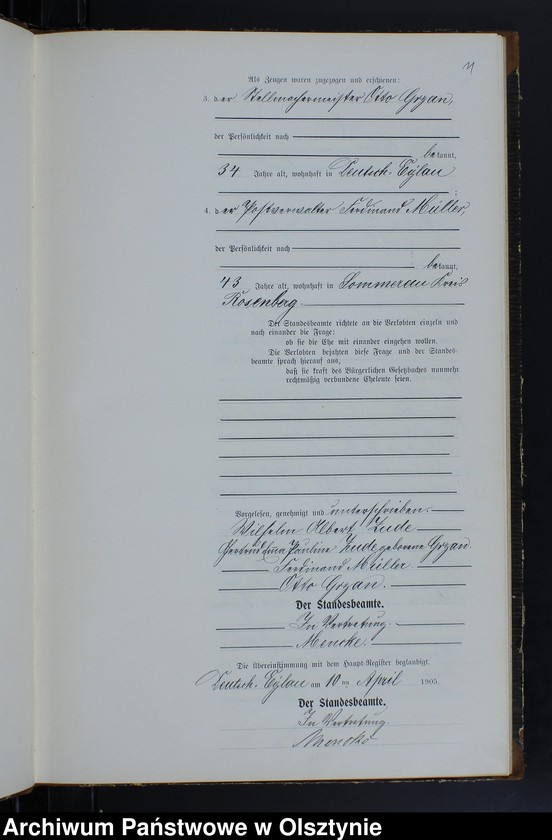 11
Als Zeugen waren zugezogen und erschienen:
3. der Stellmachermeister Otto Gryan,
der Persönlichkeit nach
bekannt,
34 Jahre alt, wohnhaft in Deutsch-Eylau
4. der Postverwalter Ferdinand Müller,
der Persönlichkeit nach
bekannt,
43 Jahre alt, wohnhaft in Sommerau Kreis
Rosenberg.
Der Standesbeamte richtete an die Verlobten einzeln und
nach einander die Frage:
ob sie die Ehe mit einander eingehen wollen.
Die Verlobten bejahten diese Frage und der Standes-
beamte sprach hierauf aus,
daß sie kraft des Bürgerlichen Gesetzbuches nunmehr
rechtmäßig verbundene Eheleute seien.
Vorgelesen, genehmigt und unterschrieben.
Wilhelm Albert Zude
Gertrud Emma Pauline Zude geborene Gryan.
Ferdinand Müller
Otto Gryan.
Der Standesbeamte.
In Vertretung.
Mencke.
Die Übereinstimmung mit dem Haupt-Register beglaubigt.
Deutsch-Eylau am 10ten April 1905.
Der Standesbeamte.
In Vertretung.
Mencke
Archiwum Państwowe w Olsztynie